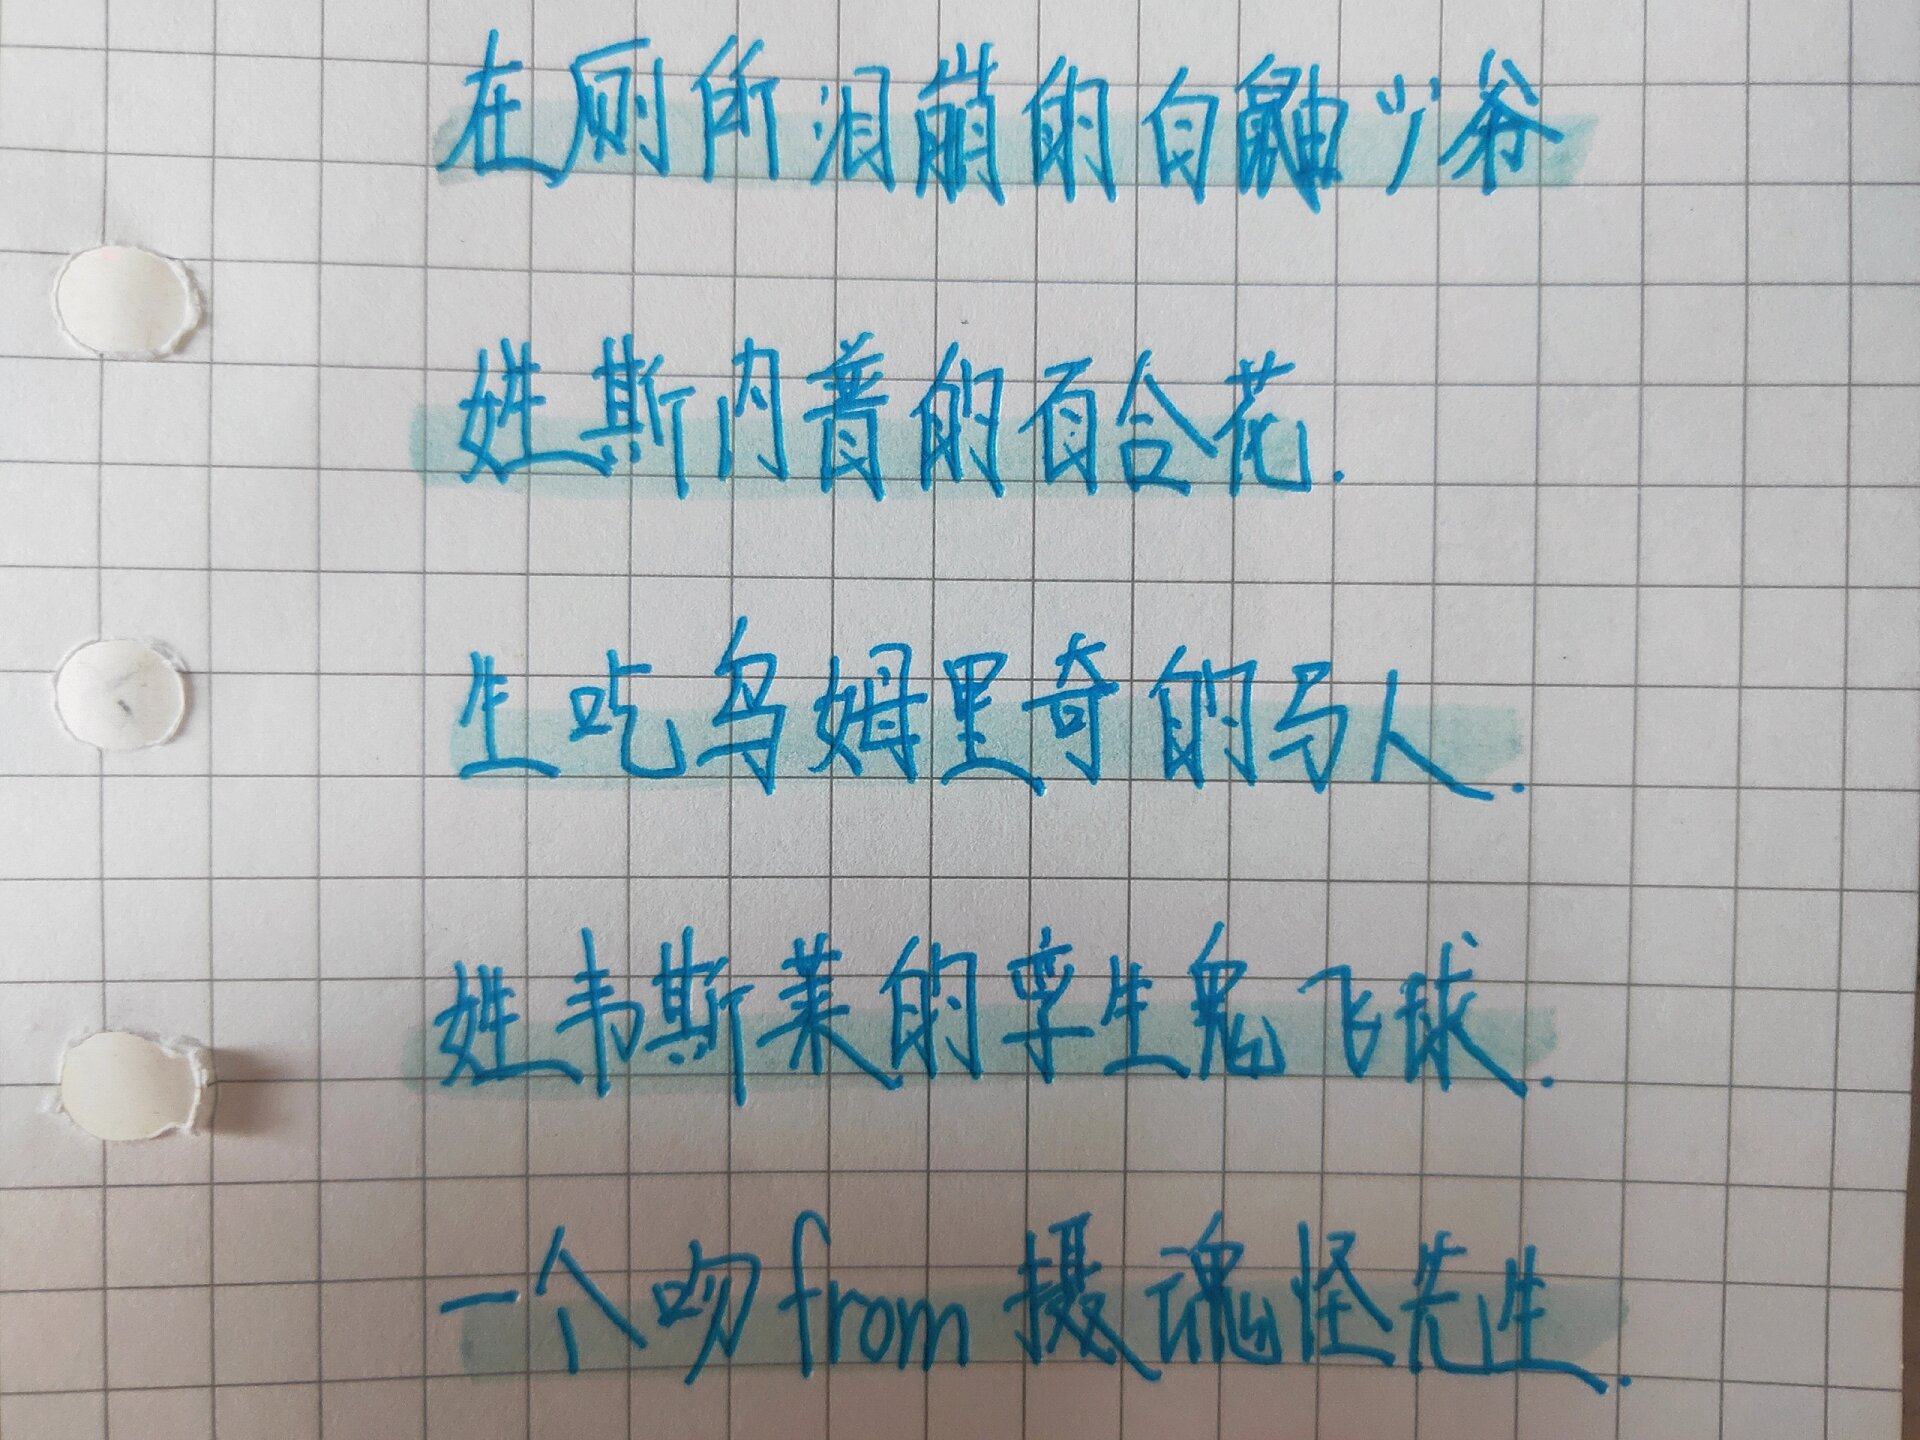 在厕所泪崩的白鼬少爷
姓斯内普的百合花.
生吃乌姆里奇的马人.
姓韦斯莱的孪生鬼飞球.
一个吻from摄魂怪先生.